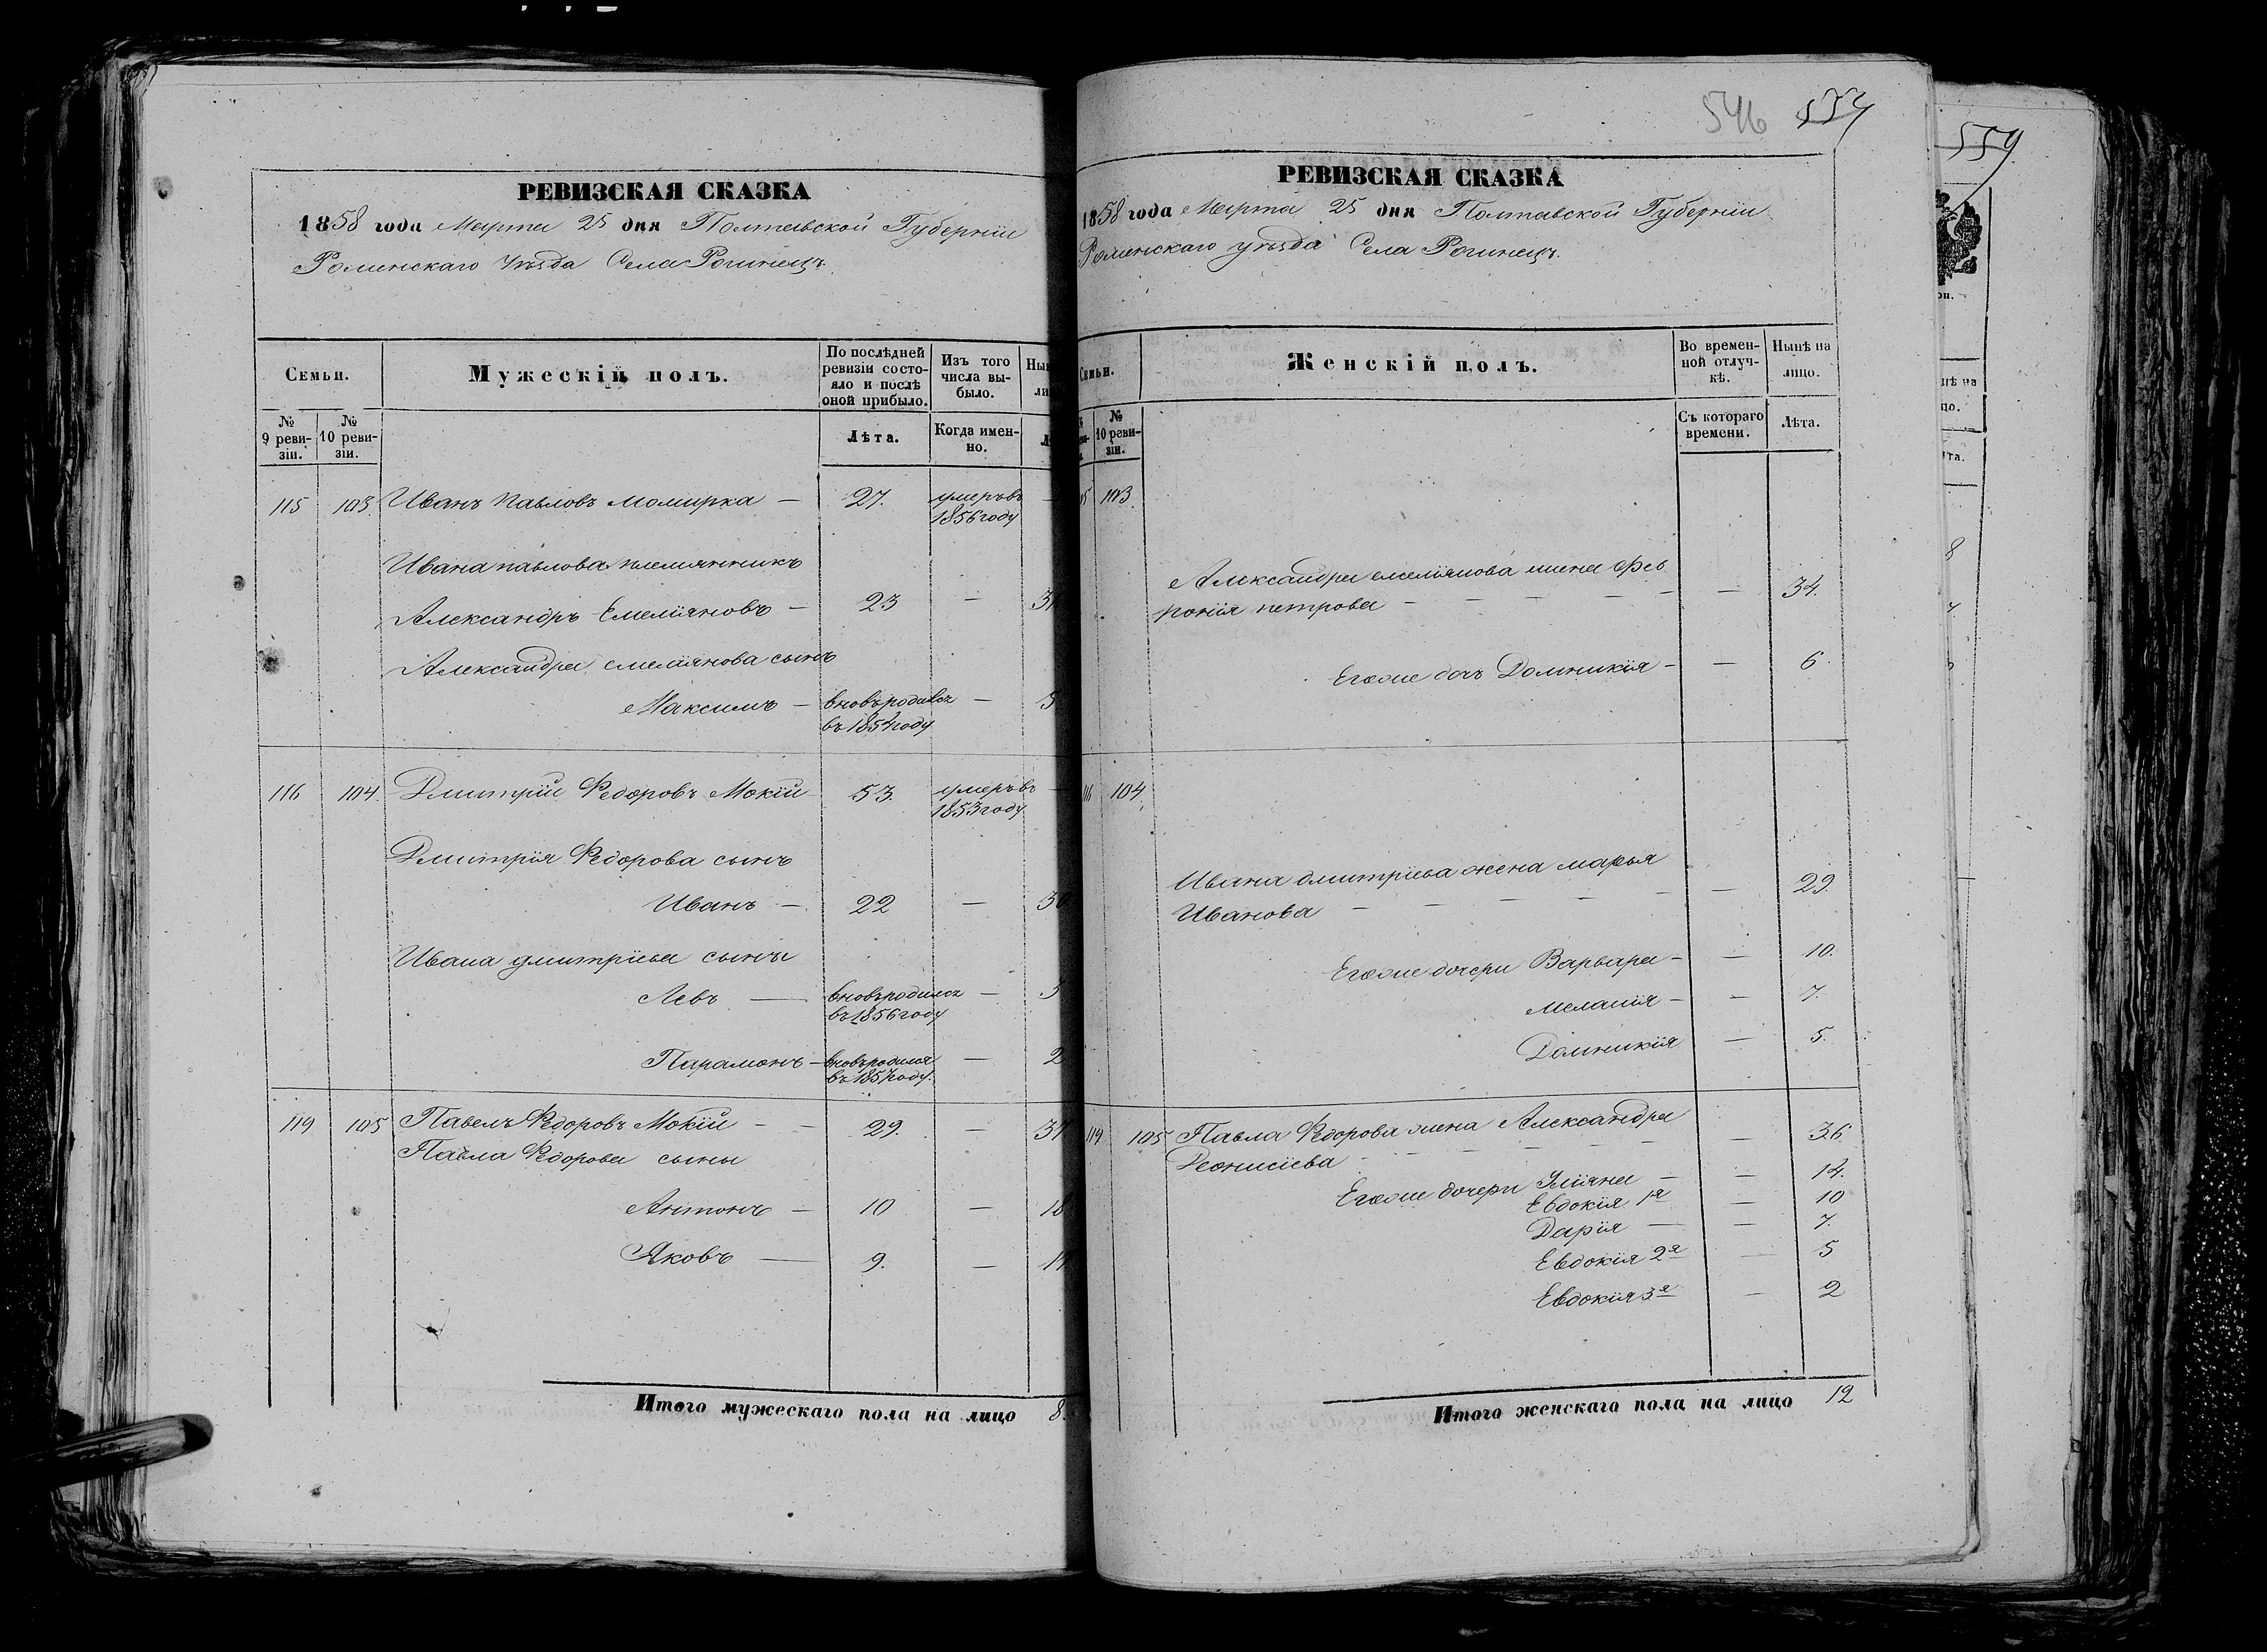 РЕВИЗСКАЯ СКАЗКА
1858 года Марта 25 дня Полтавской Губерніи
Роменскаго Уѣзда Села Рогинецъ.
Семьи.
Мужескій полъ.
По послѣдней ревизіи состояло и послѣ оной прибыло.
Изъ того числа выбыло.
№ 9 ревизіи.
№ 10 ревизіи.
Лѣта.
Когда именно.
115 103. Иванъ Павловъ Момирка — 27. умеръ въ
1856 году
Ивана павлова племянникъ
Александръ Емеліяновъ — 23 —
Александра емеліянова сынъ
Максимъ — вновьродился —
въ 1854 году
116 104. Дмитрій Федоровъ Мокій 53. умеръ въ
1853 году
Дмитрія Федорова сынъ
Иванъ — 22 — 30
Ивана дмитріева сыны
Левъ — вновьродился — 3
въ 1856 году
Парамонъ — вновьродился — 2
въ 1857 году.
119 105 Павелъ Федоровъ Мокій — — 29. — 37
Павла Федорова сыны
Антонъ — 10 — 18
Яковъ — 9. — 17
Итого мужескаго пола на лицо 8.
546 554
РЕВИЗСКАЯ СКАЗКА
1858 года Марта 25 дня Полтавской Губерніи
Роменскаго уѣзда Села Рогинецъ.
Семьи.
Женскій полъ.
Во временной отлучкѣ.
Нынѣ на лицо.
№ 10 ревизіи.
Съ котораго времени.
Лѣта.
103
Александра емеліянова жена Фев
ронія петрова — — — — — — 34.
Егоже дочь Домникія — — 6.
116 104.
Ивана дмитріева жена марья
Иванова — — — — — — 29.
Егоже дочери Варвара — — 10.
Меланія — — 7.
Домникія — 5.
119 105 Павла Федорова жена Александра
Деонисіева — — — — — — 36.
Егоже дочери Уліяна — — 14.
Евдокія 1я — 10
Дарія — — 7.
Евдокія 2я — 5
Евдокія 3я — 2
Итого женскаго пола на лицо 12
559